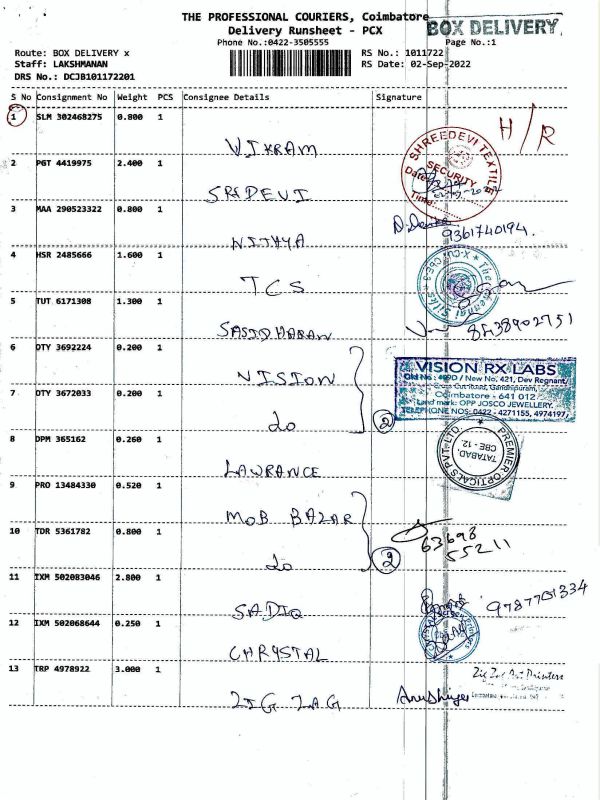 THE PROFESSIONAL COURIERS, Coimbatore
BOX DELIVERY
Delivery Runsheet - PCX
Phone No.:0422-3505555
Page No.:1
Route: BOX DELIVERY x
RS No.: 1011722
Staff: LAKSHMANAN
RS Date: 02-Sep-2022
DRS No.: DCJB101172201
S No Consignment No Weight PCS Consignee Details Signature
1 SLM 302468275 0.800 1
VIKRAM
H/R
SHREEDEVI TEXTILE
SECURITY
Date:
Time:
2 PGT 4419975 2.400 1
SRIDEVI
3 MAA 290523322 0.800 1
NITHYA
9361740194.
4 HSR 2485666 1.600 1
TCS
The Chennai Silks
5 TUT 6171308 1.300 1
SASIDHARAN
8438902751
6 OTY 3692224 0.200 1
NISION
VISION RX LABS
Old No: 4090 / New No. 421, Dev Regnant,
Cross Cut Road, Gandhipuram,
Coimbatore - 641 012
Land mark: OPP JOSCO JEWELLERY.
TELEPHONE NOS: 0422 - 4271155, 4974197
7 OTY 3672033 0.200 1
do
2
8 DPM 365162 0.260 1
LAWRANCE
PREMIER OPTICALS PVT. LTD.
TATABAD,
CBE - 12.
9 PRO 13484330 0.520 1
MOB BAZAR
10 TDR 5361782 0.800 1
do
2
63698
55211
11 IXM 502083046 2.800 1
SADIQ
9787701334
12 IXM 502068644 0.250 1
CHRYSTAL
13 TRP 4978922 3.000 1
ZIG ZAG
Zig Zag Art Printers